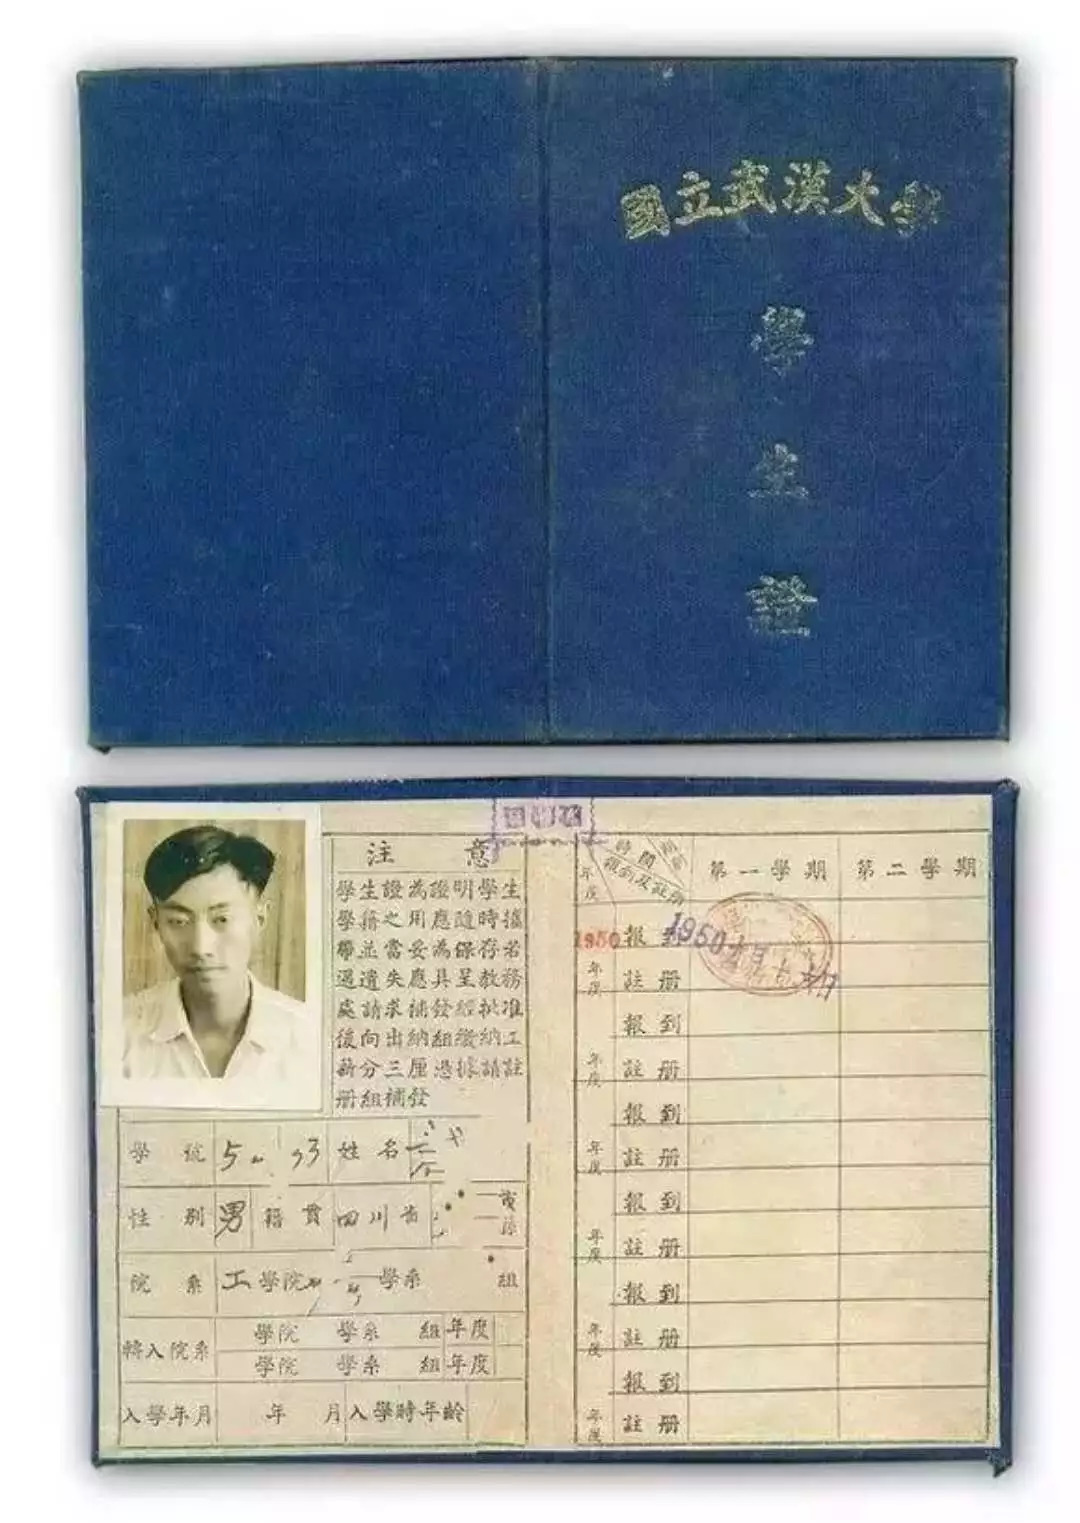 國立武漢大學
學
生
證
注意
學生證為證明學生
學籍之用應隨時攜
帶並當妥為保存若
遇遺失應具呈教務
處請求補發經批准
後向出納組繳納工
薪分三厘憑據請註
册組補發
學號 姓名
性別 男 籍貫 四川省
院系 工學院 學系 組
轉入院系 學院 學系 組 年度
學院 學系 組 年度
入學年月 年 月 入學時年齡
年度 時間 報到及註册 第一學期 第二學期
1950 年度 報到 1950
註册
年度 報到
註册
年度 報到
註册
年度 報到
註册
年度 報到
註册
年度 報到
註册